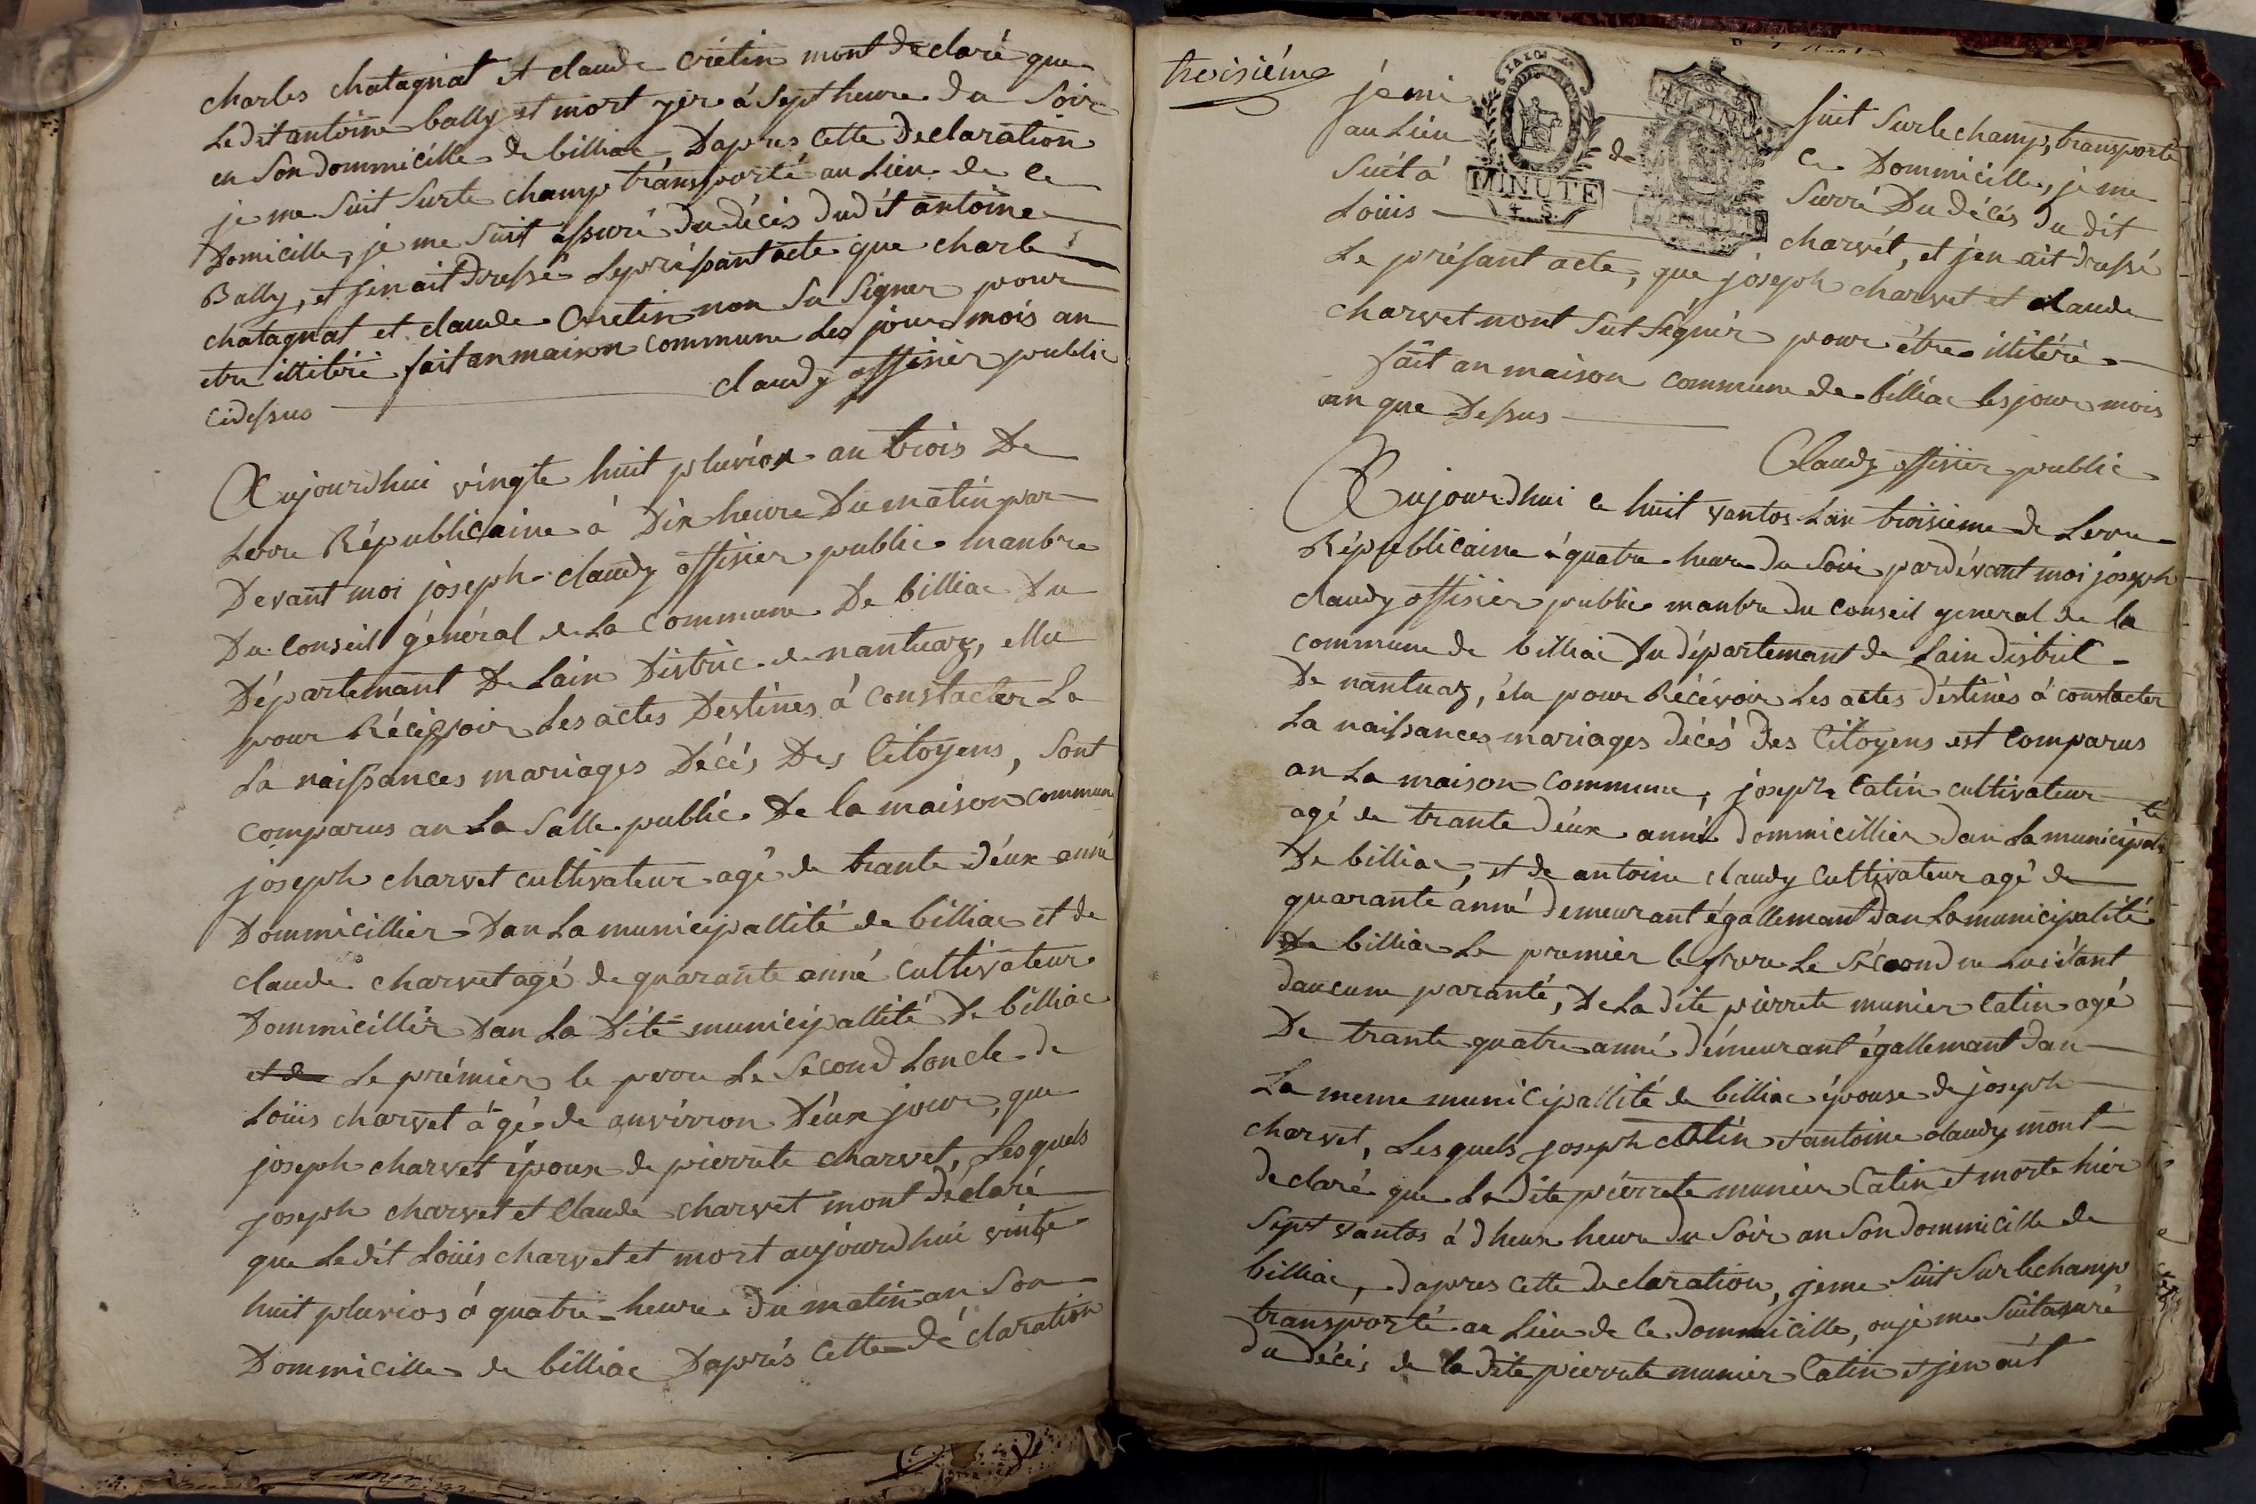 charles chatagnat et claude Crétin mont declaré que
Le dit antoine bally et mort yer á Sept heure Du Soir
en Son dommicille de billiac Dapres Cette Declaration
je me Suit Surle champ transporté au Lieu de Ce
Domicille, je me Suit assuré Du décés dudit antoine
Bally, et jen ait Dressé Le présant acte que charle
chatagnat et claude Cretin non Su Signer pour
etre illitéré fait an maison commune Les jour mois an
cidessus
claudy offisier public
Aujourdhui vingte huit pluviox an trois De
Lerre Républicaine à Dix heure Du matin par
Devant moi joseph claudy offisier public manbre
Du Conseil général de La Commune De billiac Du
Département De Lain Distric de nantuaz, ellu
pour Récepvoir Les actes Destines á Constacter La
La naissances mariages Décés Des Citoyens, Sont
Comparus an La Salle public De la maison commune
joseph charvet cultivateur agé de trante déux anné
Dommicillier Dan La municipallité de billiac et de
claude charvet agé de quarante anné Cultivateur
Dommicillier Dan La Dite municipallité De billiac
et de Le prémier le perre Le Second Loncle de
Loüis charvet ágé de anvirron Déux jour, que
joseph charvet époux de pierrete charvet, Lesquels
joseph charvet et Claude charvet mont Déclaré
que Le dit Loüis charvet et mort aujourdhui vingte
huit pluvios á quatre heure Du matin an Son
Dommicille de billiac Daprés Cette Déclaration
troisiéme
jémi Suit Surle champ, transporté
au Lieu de Ce Dommicille, je me
Suit á Surré Du décés du dit
Loüis charvét, et jén ait dressé
MINUTE
4. S.
Le présant acte, que joseph charvet et claude
Charvet nont Sut Ségnér pour étre illitéré
fait an maison Commune de billiac les jour mois
an que Dessus
Claudy offisier public
Aujourdhui Ce huit vantos Lan troisieme de Lerre
Républicaine á quatre heure du Soir pardévant moi joseph
claudy offisier public manbre du Conseil general de la
Commune de billiac Du département de Lain district
De nantuaz, élu pour Récévoir Les actes déstinés á constacter
La naissances mariages décés Des Citoyens est Comparus
an La maison Commune, joseph Catin cultivateur
agé de trante déux anné dommicillier dan La municipalité
De billiac, et de antoine claudy Cultivateur agé de
quarante anné demeurant égallemant dan La municipalité
de billiac Le premier le frere Le Sécond ne Lui étant
daucune paranté, De La dite pierrete munier Catin agé
De trante quatre anné démeurant égallemant dan
La meme municipallité de billiac épouse de joseph
charvet, Lesquels joseph Catin et antoine claudy mont
declaré que La dite piérrete munier Catin et morte hier
Sept vantos á dheux heure du Soir an Son dommicille de
billiac, dapres Cette declaration, jeme Suit Surlechamp
transporté au Lieu de Ce dommicille, ou je me Suit asuré
du décés de la dite pierrete munier Catin et jen ait